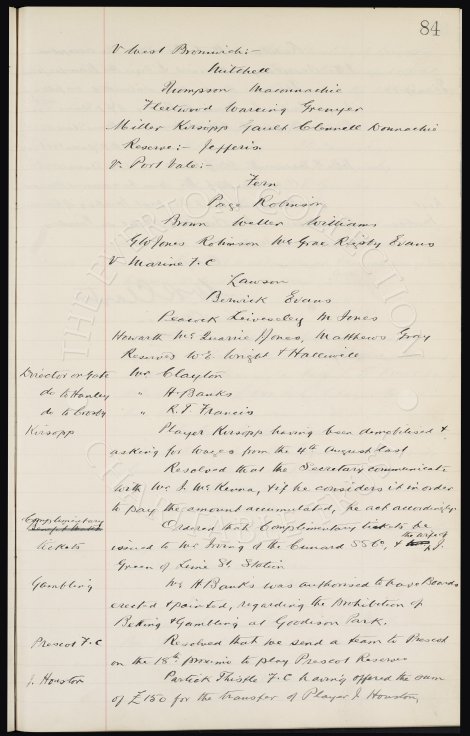 84
V West Bromwich:-
Mitchell
Thompson Maconnachie
Fleetwood Wareing Grenyer
Miller Kirsopp Gault Clennell Donnachie
Reserve:- Jefferis
V. Port Vale:-
Fern
Page Robinson
Brown Weller Williams
Glo Jones Robinson McGrae Rigsby Evans
V Marine F.C
Lawson
Berwick Evans
Peacock Livesley M Jones
Howarth McQuarrie J Jones, Matthews Gray
Reserves Wright & Halliwell
Director or Gate Mr Clayton
do to Hanley " H Banks
do to Crosby " R. T Francis
Kirsopp Player Kirsopp having been demobilised &
asking for wages from the 4th August last
Resolved that the Secretary communicate
with Mr J. McKenna, & if he considers it in order
to pay the amount accumulated, he act accordingly.
Complimentary Ordered that Complimentary tickets be
tickets issued to Mr Irving of the Cunard SS Co, &
Green of Lime St. Station
Gambling Mr H Banks was authorised to have Boards
erected & painted, regarding the Prohibition of
Betting & Gambling at Goodison Park.
Prescot F.C Resolved that we send a team to Prescot
on the 18th proximo to play Prescot Reserve
J. Houston Partick Thistle F.C having offered the sum
of £150 for the transfer of Player J Houston,
THE EVERTON COLLECTION
CHARITABLE TRUST